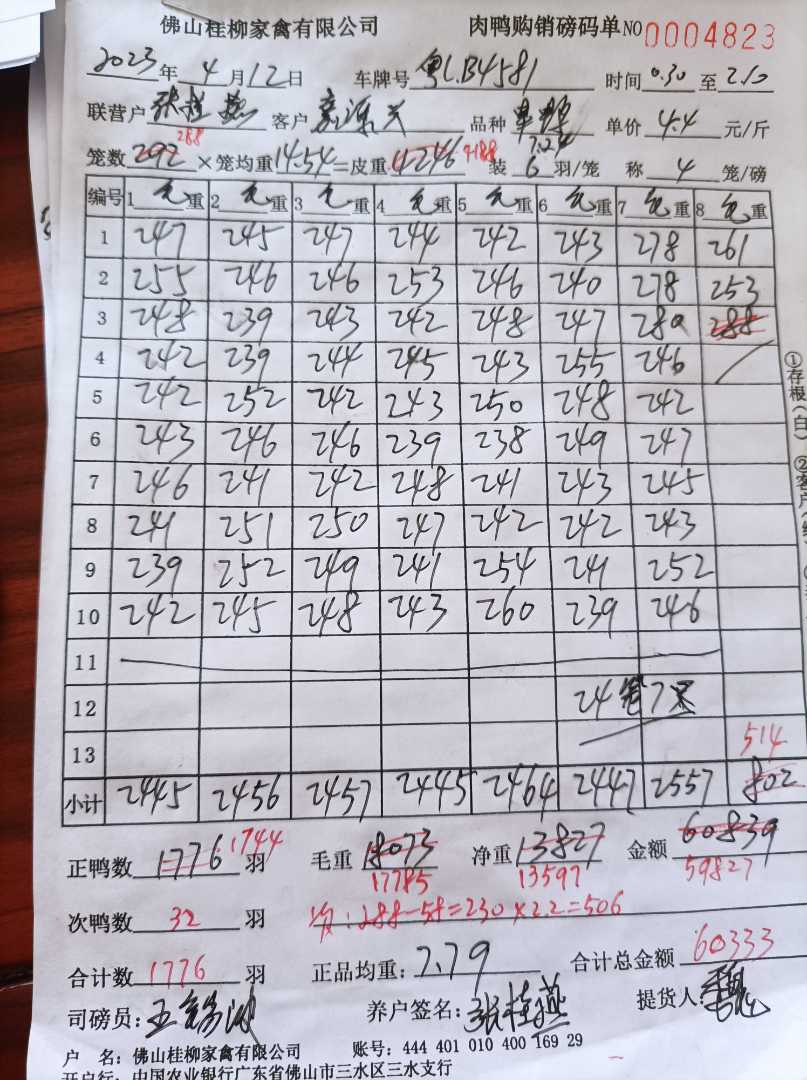 佛山桂柳家禽有限公司 肉鸭购销磅码单 NO 0004823
2023年 4月12日 车牌号 粤L.B4581 时间 0.30 至 2.10
联营户 张桂燕 客户 品种 单价 4.4 元/斤
288 7.24
笼数 292 ×笼均重 14.54 =皮重 4246 4188 装 6 羽/笼 称 4 笼/磅
编号 1 毛 重 2 毛 重 3 毛 重 4 毛 重 5 毛 重 6 毛 重 7 毛 重 8 毛 重
1 247 245 247 244 242 243 278 261
2 255 246 246 253 246 240 278 253
3 248 239 243 242 248 247 280 288
4 242 239 244 245 243 255 246
5 242 252 242 243 250 248 242
6 243 246 246 239 238 249 247
7 246 241 242 248 241 243 245
8 241 251 250 247 242 242 243
9 239 252 249 241 254 241 252
10 242 245 248 243 260 239 246
11
12 24笼7只
13 514
小计 2445 2456 2457 2445 2464 2447 2557 802
正鸭数 1776 1744 羽 毛重 18073 净重 13827 金额 60839
17785 13597 59827
次鸭数 32 羽 288-58=230×2.2=506
合计数 1776 羽 正品均重: 7.79 合计总金额 60333
司磅员: 养户签名: 张桂燕 提货人
户 名: 佛山桂柳家禽有限公司 账号: 444 401 010 400 169 29
开户行: 中国农业银行广东省佛山市三水区三水支行
①存根(白) ②客户